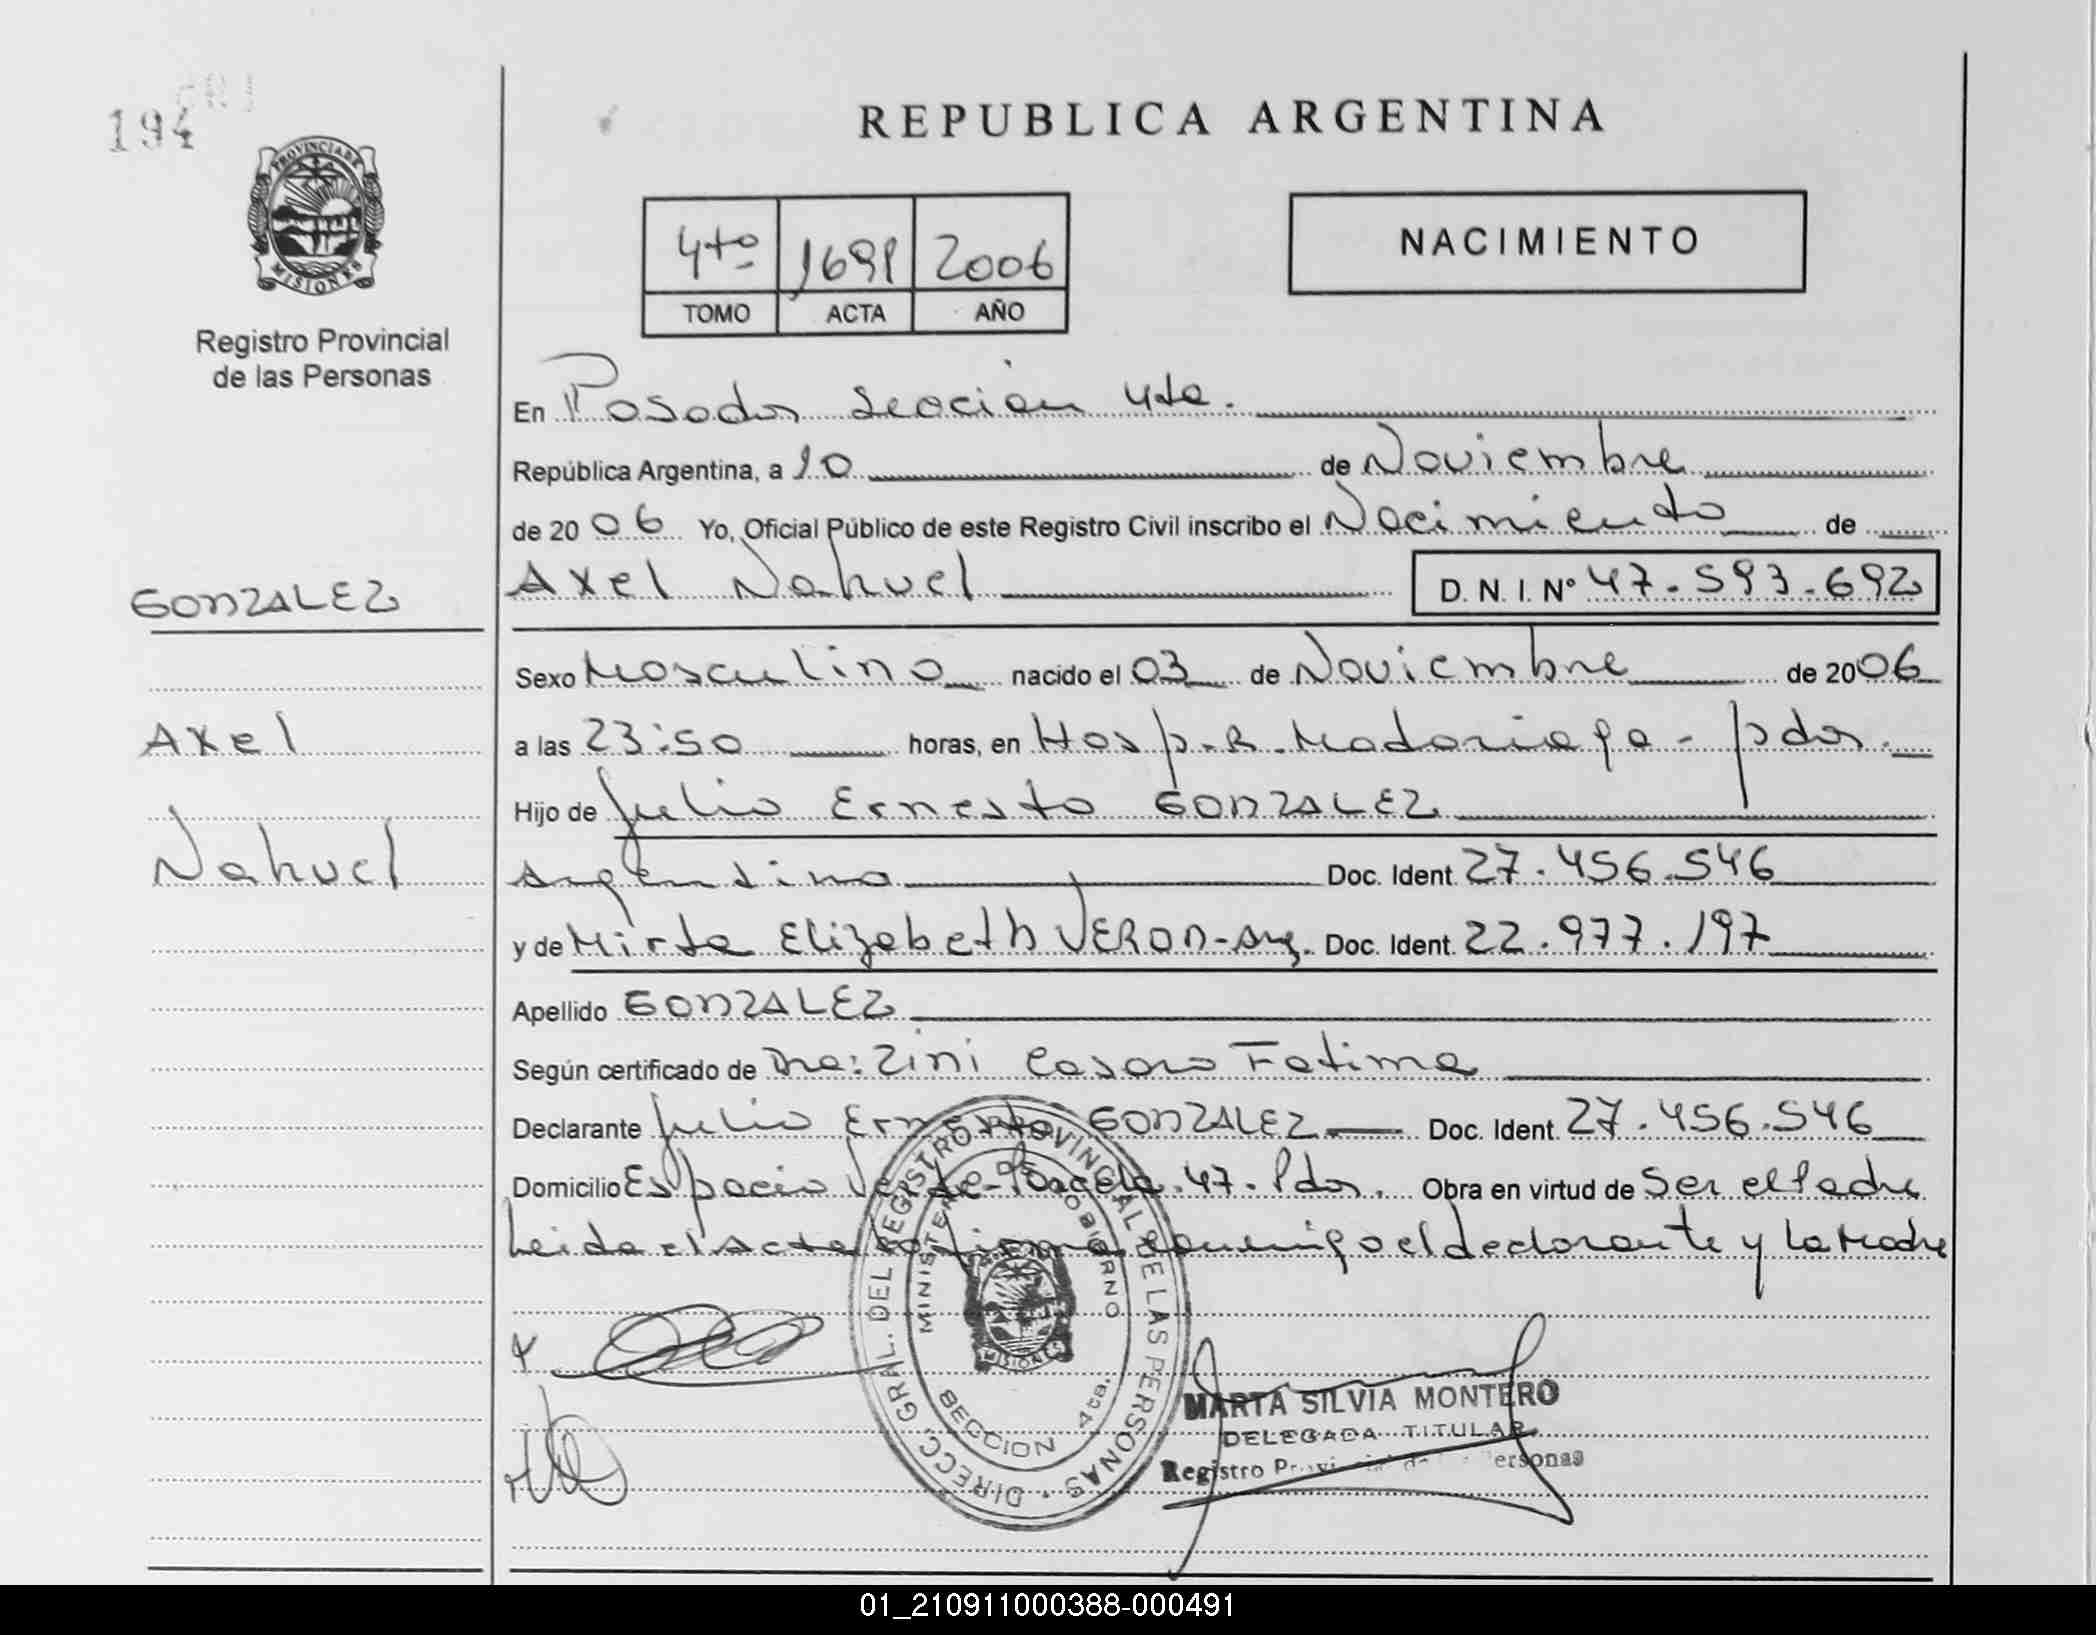 194
PROVINCIA DE
MISIONES
Registro Provincial
de las Personas
REPUBLICA ARGENTINA
4to 1691 2006
TOMO ACTA AÑO
NACIMIENTO
En Posadas sección 4ta.
República Argentina, a 10 de Noviembre
de 2006 Yo, Oficial Público de este Registro Civil inscribo el Nacimiento de
GONZALEZ
Axel Nahuel D. N. I. Nº 47.593.692
Sexo Masculino nacido el 03 de Noviembre de 2006
Axel
a las 23:50 horas, en Hosp. R. Madariaga - Pdas.
Hijo de Julio Ernesto GONZALEZ
Nahuel
Argentino Doc. Ident. 27.456.546
y de Mirta Elizabeth VERON - Arg. Doc. Ident. 22.977.197
Apellido GONZALEZ
Según certificado de Dra: Zini Fatima
Declarante Julio Ernesto GONZALEZ Doc. Ident. 27.456.546
Domicilio Espacio Verde - Parcela 47 - Pdas. Obra en virtud de Ser el Padre
Leida el Acta la firma conmigo el declarante y la Madre
DIRECC. GRAL. DEL REGISTRO PROVINCIAL DE LAS PERSONAS
MINISTERIO DE GOBIERNO
MISIONES
SECCION 4ta.
MARTA SILVIA MONTERO
DELEGADA TITULAR
Registro Provincial de las Personas
01_210911000388-000491